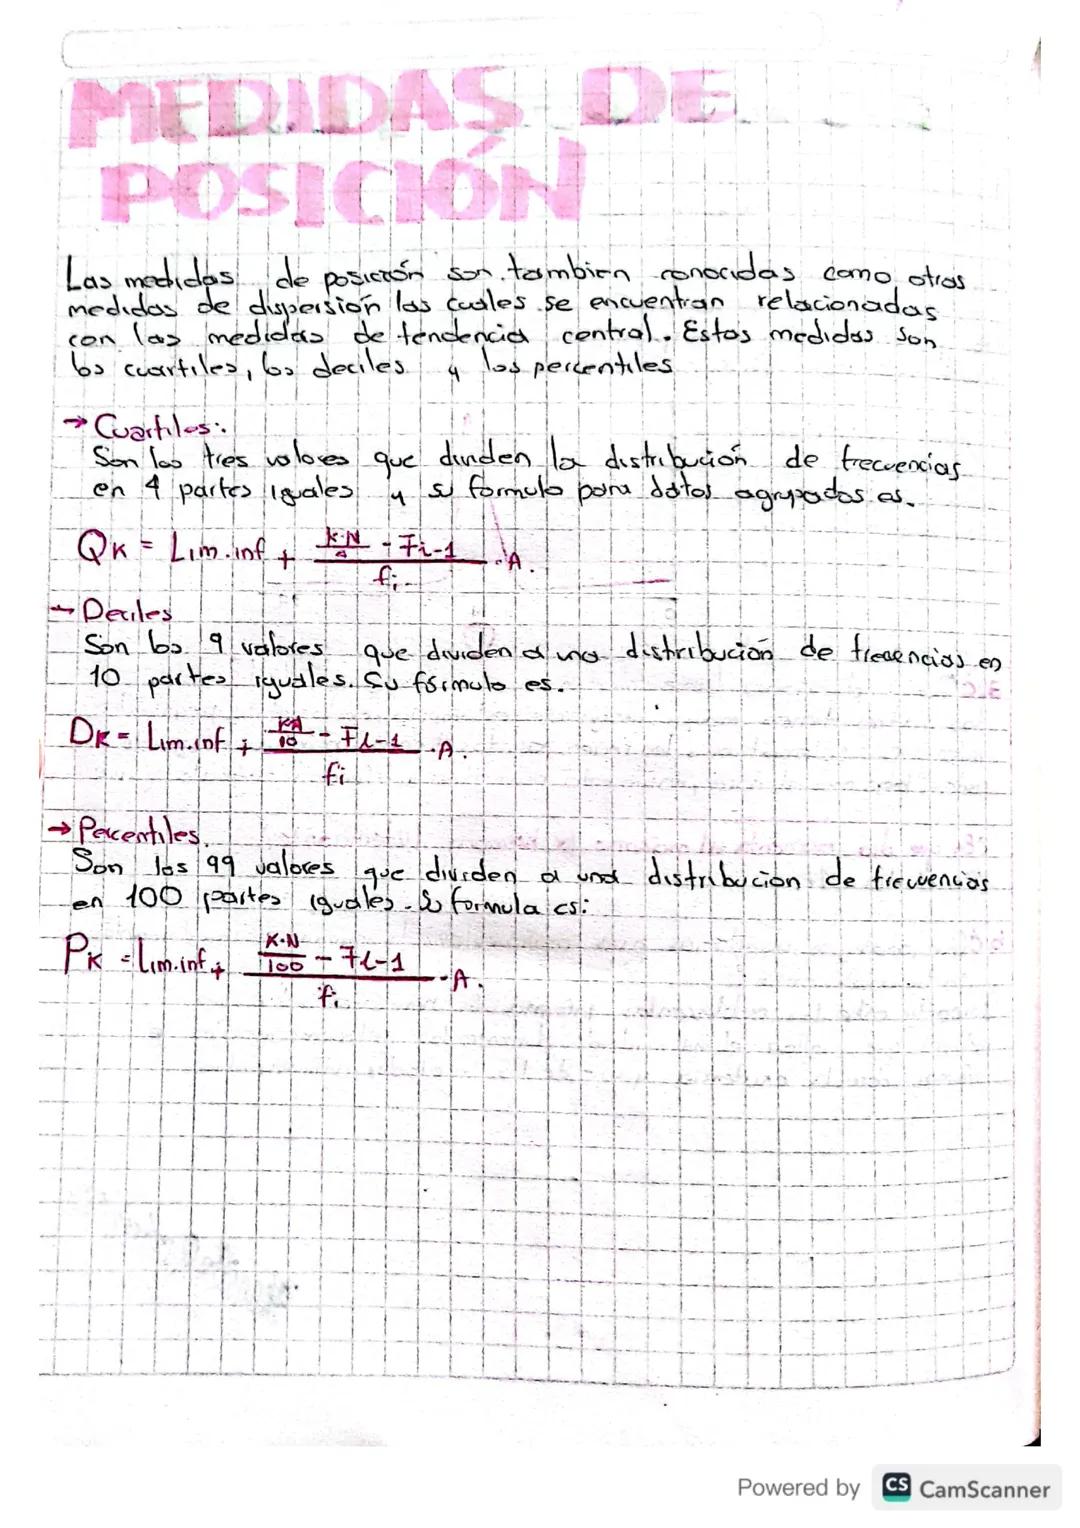 MEDIDAS DE
POSICIÓN
Las medidas de posición son tambien conocidas como otras
medidas de dispersión las cuales se encuentran relacionadas
con las medidas de tendencia central. Estas medidas son
los cuartiles, los deciles y los percentiles
→ Cuartiles:
Son los tres valores que dividen la distribución de frecuencias
en 4 partes iguales y su formula para datos agrupados es.
QK = Lim.inf + (K·N/4 - Fi-1)/fi · A.
→ Deciles
Son los 9 valores que dividen a una distribución de frecuencias en
10 partes iguales. Su fórmula es.
DK = Lim.inf + (KN/10 - Fi-1)/fi · A.
→ Percentiles.
Son los 99 valores que dividen a una distribución de frecuencias
en 100 partes iguales. Su formula es:
PK = Lim.inf + (K·N/100 - Fi-1)/fi · A.
Powered by CS CamScanner